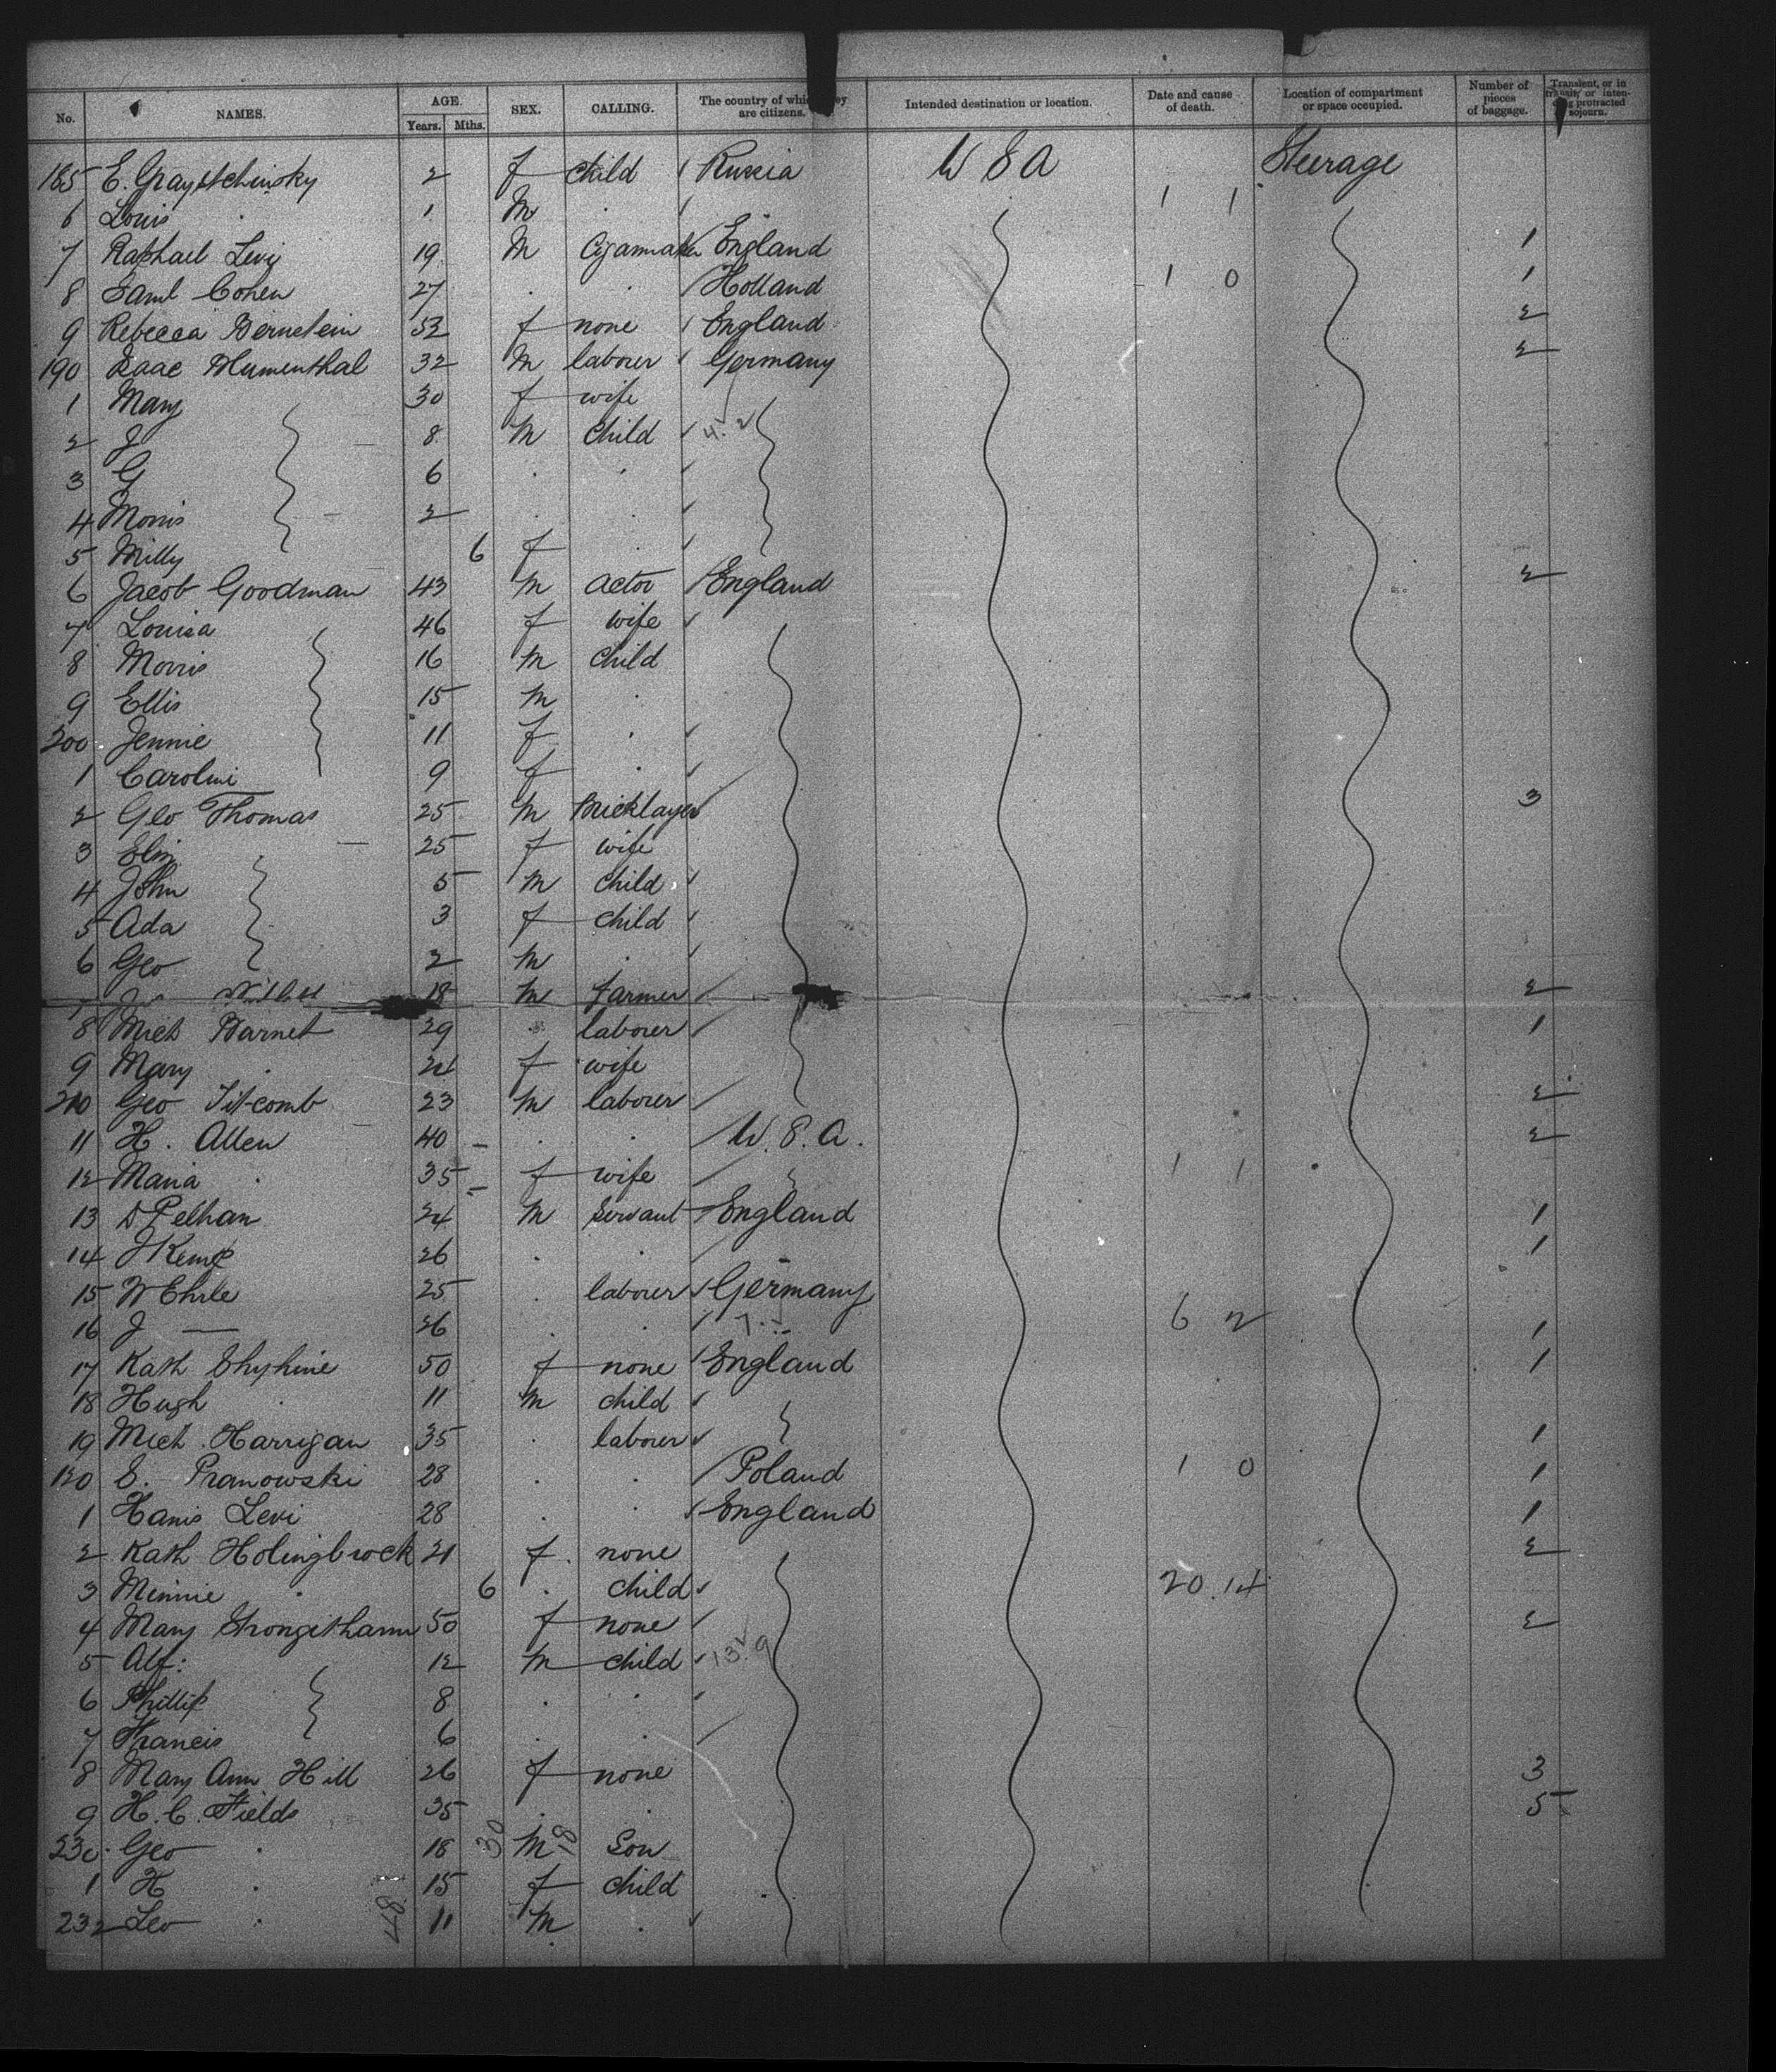 No. NAMES. AGE. Years. Mths. SEX. CALLING. The country of whi ey are citizens. Intended destination or location. Date and cause of death. Location of compartment or space occupied. Number of pieces of baggage. Transient, or in transit, or inten- protracted sojourn.
185 E. 2 f child Russia U S A Steerage
6 Louis 1 M . 1 1
7 Raphael Levy 19 M Cigarmaker England 1
8 Saml Cohen 27 . . Holland 1 0 1
9 Rebecca Bernstein 52 f none England 2
190 Isaac Blumenthal 32 M labourer Germany 2
1 Mary 30 f wife
2 J 8 M child 4. 2
3 G 6 . .
4 Morris 2 . .
5 Milly 6 f .
6 Jacob Goodman 43 M actor England 2
7 Louisa 46 f wife
8 Morris 16 M child
9 Ellis 15 M .
200 Jennie 11 f .
1 Caroline 9 f .
2 Geo Thomas 25 M Bricklayer 3
3 25 f wife
4 John 5 M child
5 Ada 3 f child
6 Geo 2 M .
7 18 M farmer 2
8 Mich Barnet 29 labourer 1
9 Mary . 24 f wife
210 Geo Titcomb 23 M labourer 2
11 H. Allen 40 - . . U. S. A. 2
12 Maria . 35 - f wife 1 1
13 D Pelhan 24 M Servant England 1
14 J Kemp 26 . . 1
15 W Ehrle 25 . labourer Germany
16 J — 26 . . 6 2 1
17 Kath 50 f none England 1
18 Hugh . 11 M child
19 Mich. Harrigan 35 . labourer 1
120 S. Pranowski 28 . . Poland 1 0 1
1 Harris Levi 28 . . England 1
2 Kath Holingbrock 21 f. none 2
3 Minnie . 6 . child 20. 14
4 Mary Strongitharm 50 f none 2
5 Alf: 12 M child 13. 9
6 Phillip 8 . .
7 Francis 6 . .
8 Mary Ann Hill 26 f none 3
9 H. C. Fields 35 . . 5
230 Geo . 18 30 M 18 Son
1 H . 15 f child
232 Leo . 11 M .